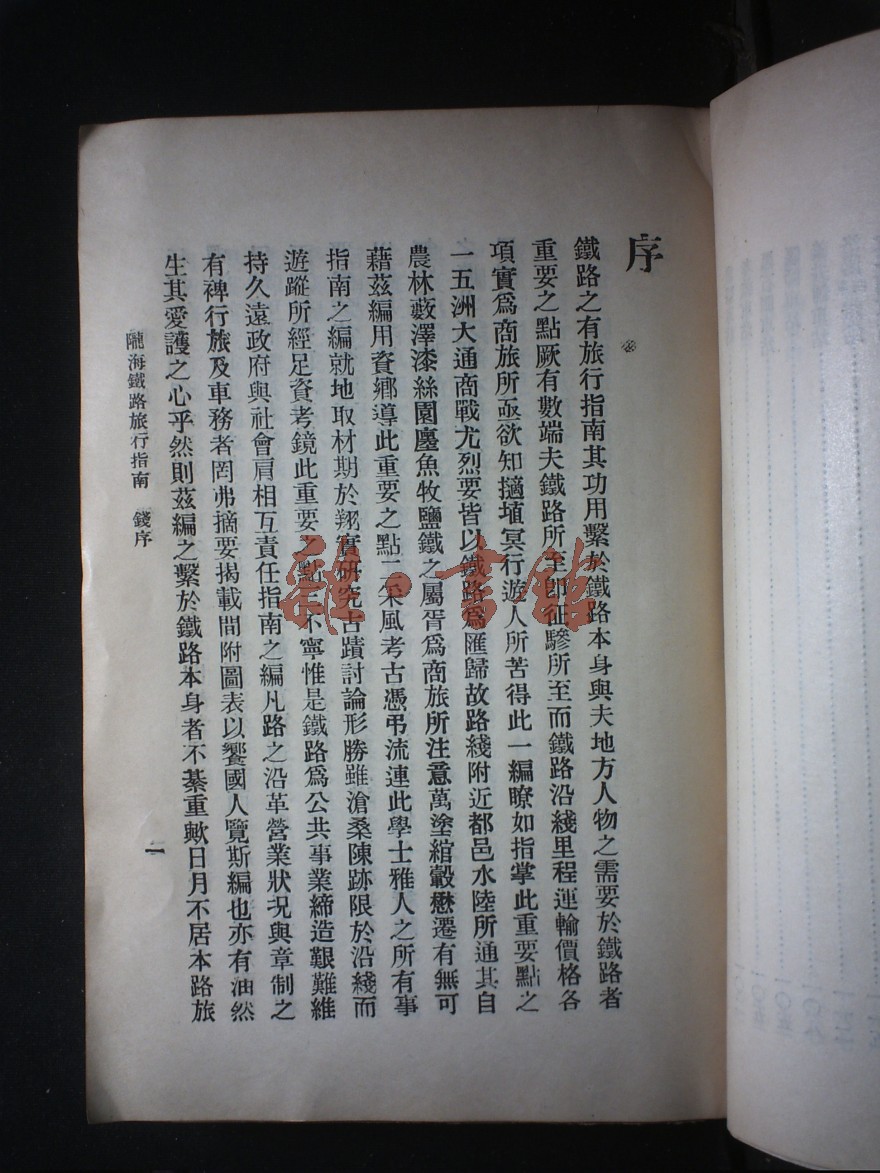 序
鐵路之有旅行指南其功用繫於鐵路本身與夫地方人物之需要於鐵路者
重要之點厥有數端夫鐵路所至卽征驂所至而鐵路沿綫里程運輸價格各
項實爲商旅所亟欲知擿埴冥行遊人所苦得此一編瞭如指掌此重要點之
一五洲大通商戰尤烈要皆以鐵路爲匯歸故路綫附近都邑水陸所通其自
農林藪澤漆絲園廛魚牧鹽鐵之屬胥爲商旅所注意萬塗綰轂懋遷有無可
藉茲編用資鄉導此重要之點二采風考古憑弔流連此學士雅人之所有事
指南之編就地取材期於翔實研究古蹟討論形勝雖滄桑陳跡限於沿綫而
遊蹤所經足資考鏡此重要之點三不寧惟是鐵路爲公共事業締造艱難維
持久遠政府與社會肩相互責任指南之編凡路之沿革營業狀況與章制之
有裨行旅及車務者罔弗摘要揭載間附圖表以饗國人覽斯編也亦有油然
生其愛護之心乎然則茲編之繫於鐵路本身者不綦重歟日月不居本路旅
隴海鐵路旅行指南 錢序
一
雅·書館